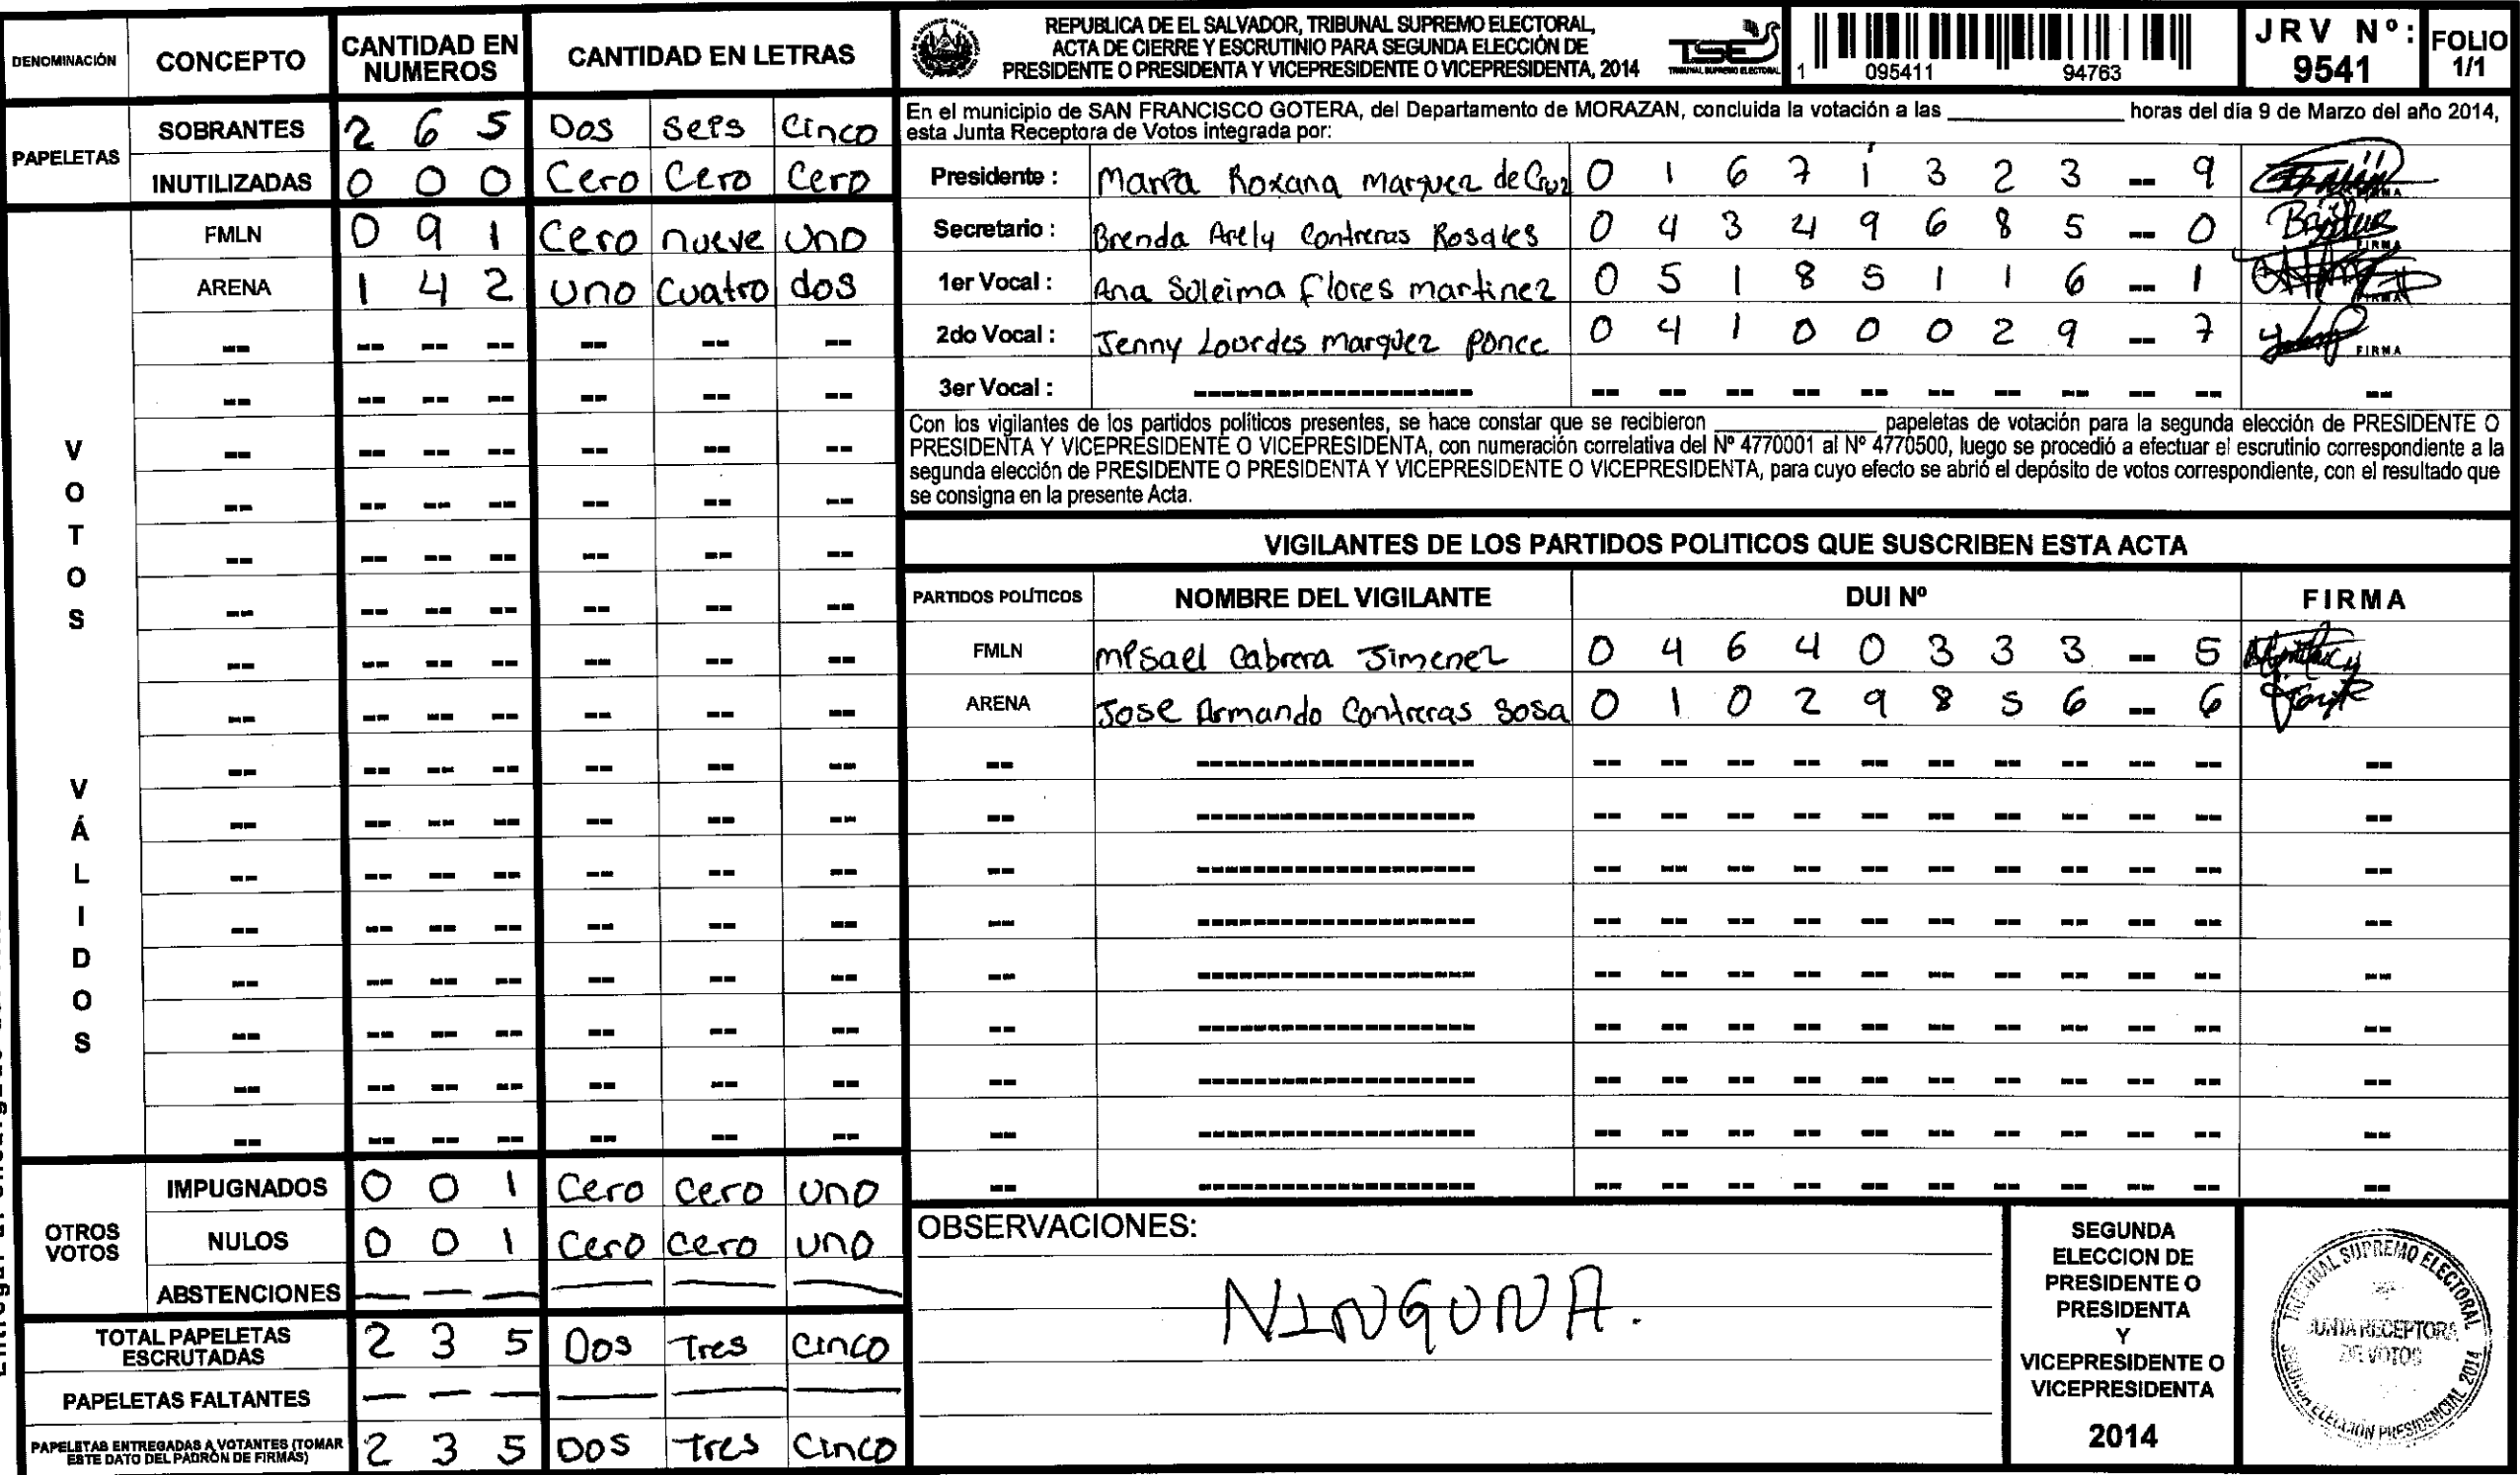 DENOMINACIÓN CONCEPTO CANTIDAD EN NUMEROS CANTIDAD EN LETRAS
PAPELETAS
SOBRANTES 2 6 5 Dos Seis Cinco
INUTILIZADAS 0 0 0 Cero Cero Cero
VOTOS VÁLIDOS
FMLN 0 9 1 Cero nueve uno
ARENA 1 4 2 uno cuatro dos
OTROS VOTOS
IMPUGNADOS 0 0 1 Cero cero uno
NULOS 0 0 1 Cero cero uno
ABSTENCIONES — — — — — —
TOTAL PAPELETAS ESCRUTADAS 2 3 5 Dos Tres Cinco
PAPELETAS FALTANTES — — — — — —
PAPELETAS ENTREGADAS A VOTANTES (TOMAR ESTE DATO DEL PADRÓN DE FIRMAS) 2 3 5 Dos tres Cinco
REPUBLICA DE EL SALVADOR, TRIBUNAL SUPREMO ELECTORAL,
ACTA DE CIERRE Y ESCRUTINIO PARA SEGUNDA ELECCIÓN DE
PRESIDENTE O PRESIDENTA Y VICEPRESIDENTE O VICEPRESIDENTA, 2014
TSE
TRIBUNAL SUPREMO ELECTORAL
1 095411 94763
JRV Nº: 9541
FOLIO 1/1
En el municipio de SAN FRANCISCO GOTERA, del Departamento de MORAZAN, concluida la votación a las ____________ horas del día 9 de Marzo del año 2014,
esta Junta Receptora de Votos integrada por:
Presidente : Maria Roxana Marquez de Cruz 0 1 6 7 1 3 2 3 -- 9
Secretario : Brenda Arely Contreras Rosales 0 4 3 2 9 6 8 5 -- 0 FIRMA
1er Vocal : Ana Suleima Flores martinez 0 5 1 8 5 1 1 6 -- 1 FIRMA
2do Vocal : Jenny Lourdes marquez ponce 0 4 1 0 0 0 2 9 -- 7 FIRMA
3er Vocal :
Con los vigilantes de los partidos políticos presentes, se hace constar que se recibieron ____________ papeletas de votación para la segunda elección de PRESIDENTE O
PRESIDENTA Y VICEPRESIDENTE O VICEPRESIDENTA, con numeración correlativa del Nº 4770001 al Nº 4770500, luego se procedió a efectuar el escrutinio correspondiente a la
segunda elección de PRESIDENTE O PRESIDENTA Y VICEPRESIDENTE O VICEPRESIDENTA, para cuyo efecto se abrió el depósito de votos correspondiente, con el resultado que
se consigna en la presente Acta.
VIGILANTES DE LOS PARTIDOS POLITICOS QUE SUSCRIBEN ESTA ACTA
PARTIDOS POLÍTICOS NOMBRE DEL VIGILANTE DUI Nº FIRMA
FMLN Misael Cabrera Jimenez 0 4 6 4 0 3 3 3 -- 5
ARENA Jose Armando Contreras Sosa 0 1 0 2 9 8 5 6 -- 6
OBSERVACIONES:
NINGUNA.
SEGUNDA
ELECCION DE
PRESIDENTE O
PRESIDENTA
Y
VICEPRESIDENTE O
VICEPRESIDENTA
2014
TRIBUNAL SUPREMO ELECTORAL
JUNTA RECEPTORA
DE VOTOS
SEGUNDA ELECCIÓN PRESIDENCIAL 2014